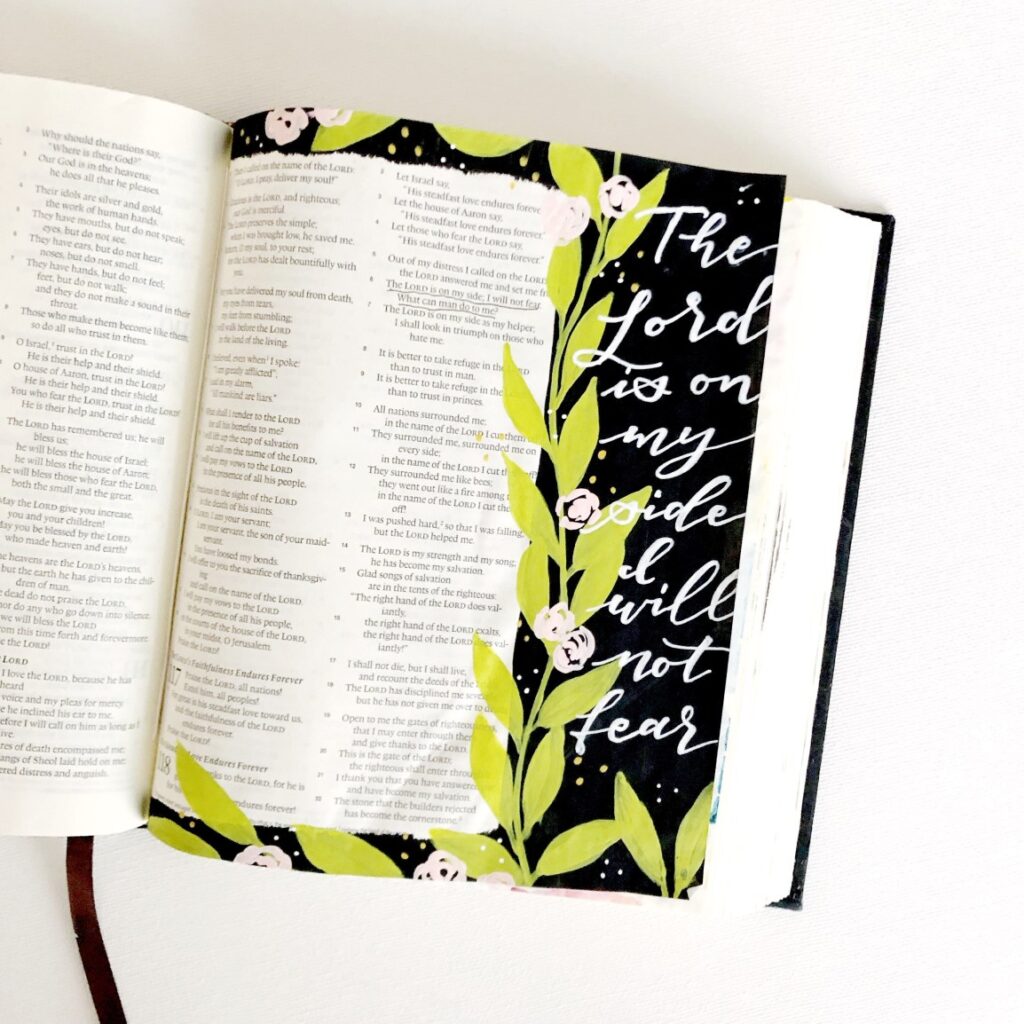 2 Why should the nations say,
"Where is their God?"
3 Our God is in the heavens;
he does all that he pleases.
4 Their idols are silver and gold,
the work of human hands.
5 They have mouths, but do not speak;
eyes, but do not see.
6 They have ears, but do not hear;
noses, but do not smell.
7 They have hands, but do not feel;
feet, but do not walk;
and they do not make a sound in their
throat.
8 Those who make them become like them;
so do all who trust in them.
9 O Israel, trust in the LORD!
He is their help and their shield.
O house of Aaron, trust in the LORD!
He is their help and their shield.
You who fear the LORD, trust in the LORD!
He is their help and their shield.
The LORD has remembered us; he will
bless us;
he will bless the house of Israel;
he will bless the house of Aaron;
he will bless those who fear the LORD,
both the small and the great.
May the LORD give you increase,
you and your children!
May you be blessed by the LORD,
who made heaven and earth!
The heavens are the LORD's heavens,
but the earth he has given to the chil-
dren of man.
The dead do not praise the LORD,
nor do any who go down into silence.
we will bless the LORD
from this time forth and forevermore.
the LORD!
LORD
I love the LORD, because he has
heard
voice and my pleas for mercy.
he inclined his ear to me,
I will call on him as long as I
live.
of death encompassed me;
pangs of Sheol laid hold on me;
distress and anguish.
Then I called on the name of the LORD:
"O LORD, I pray, deliver my soul!"
is the LORD, and righteous;
our God is merciful.
The LORD preserves the simple;
when I was brought low, he saved me.
O my soul, to your rest;
the LORD has dealt bountifully with
you.
you have delivered my soul from death,
my eyes from tears,
my feet from stumbling;
will walk before the LORD
in the land of the living.
believed, even when I spoke:
"I am greatly afflicted";
said in my alarm,
"All mankind are liars."
What shall I render to the LORD
for all his benefits to me?
will lift up the cup of salvation
and call on the name of the LORD,
will pay my vows to the LORD
in the presence of all his people.
in the sight of the LORD
is the death of his saints.
I am your servant;
I am your servant, the son of your maid-
servant.
You have loosed my bonds.
will offer to you the sacrifice of thanksgiv-
ing
and call on the name of the LORD.
I will pay my vows to the LORD
in the presence of all his people,
in the courts of the house of the LORD,
in your midst, O Jerusalem.
Praise the LORD!
Faithfulness Endures Forever
117 Praise the LORD, all nations!
Extol him, all peoples!
great is his steadfast love toward us,
and the faithfulness of the LORD
endures forever.
Praise the LORD!
Love Endures Forever
118 thanks to the LORD, for he is
endures forever!
2 Let Israel say,
"His steadfast love endures forever."
3 Let the house of Aaron say,
"His steadfast love endures forever."
4 Let those who fear the LORD say,
"His steadfast love endures forever."
5 Out of my distress I called on the LORD;
the LORD answered me and set me
6 The LORD is on my side; I will not fear.
What can man do to me?
7 The LORD is on my side as my helper;
I shall look in triumph on those who
hate me.
8 It is better to take refuge in the LORD
than to trust in man.
9 It is better to take refuge in the LORD
than to trust in princes.
10 All nations surrounded me;
in the name of the LORD I cut them
11 They surrounded me, surrounded me on
every side;
in the name of the LORD I cut them off!
12 They surrounded me like bees;
they went out like a fire among
in the name of the LORD I cut them
off!
13 I was pushed hard,² so that I was falling,
but the LORD helped me.
14 The LORD is my strength and my song;
he has become my salvation.
15 Glad songs of salvation
are in the tents of the righteous:
"The right hand of the LORD does val-
iantly,
16 the right hand of the LORD exalts,
the right hand of the LORD does val-
iantly!"
17 I shall not die, but I shall live,
and recount the deeds of the
18 The LORD has disciplined me
but he has not given me over to
19 Open to me the gates of righteousness,
that I may enter through them
and give thanks to the LORD.
20 This is the gate of the LORD;
the righteous shall enter through
21 I thank you that you have answered
and have become my salvation.
22 The stone that the builders rejected
has become the cornerstone.
The
Lord
is on
my
side
I
will
not
fear